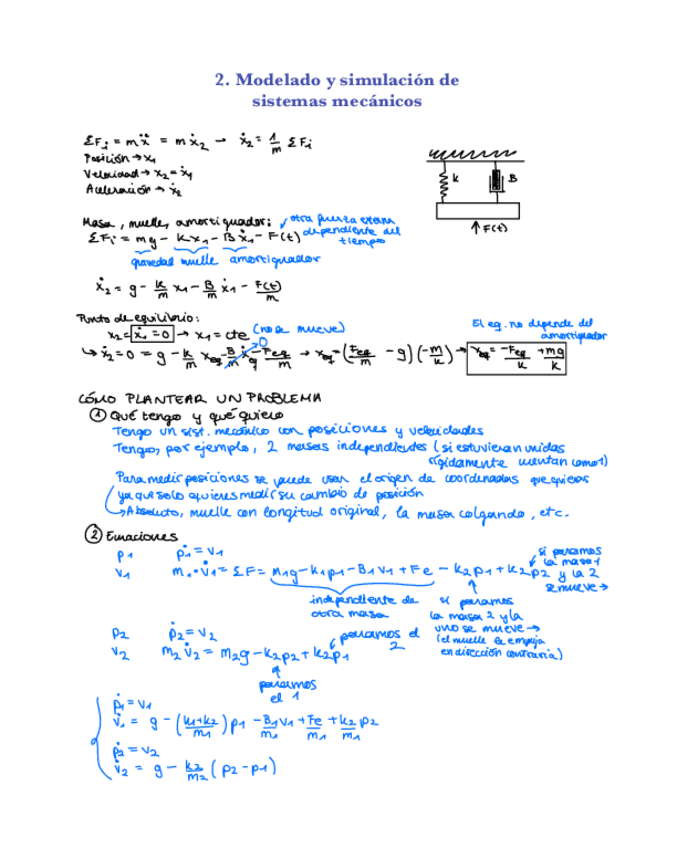 2. Modelado y simulación de
sistemas mecánicos
ΣFi = mẍ = mẋ2 → ẋ2 = 1/m ΣFi
Posición → x1
Velocidad → x2 = ẋ1
Aceleración → ẋ2
k
B
↑ F(t)
Masa, muelle, amortiguador:
otra fuerza externa
dependiente del
tiempo
ΣFi = mg - kx1 - Bẋ1 - F(t)
gravedad muelle amortiguador
ẋ2 = g - k/m x1 - B/m ẋ1 - F(t)/m
Punto de equilibrio:
x2 = ẋ1 = 0 → x1 = cte (no se mueve)
El eq. no depende del
amortiguador
0
↳ ẋ2 = 0 = g - k/m xeq - B/m ẋeq - Feq/m → xeq = (Feq/m - g)(-m/k) → xeq = -Feq/k + mg/k
CÓMO PLANTEAR UN PROBLEMA
① Qué tengo y qué quiero
Tengo un sist. mecánico con posiciones y velocidades
Tengo, por ejemplo, 2 masas independientes (si estuvieran unidas
rígidamente cuentan como 1)
Para medir posiciones se puede usar el origen de coordenadas que quieras
ya que solo quieres medir su cambio de posición
↳ Absoluto, muelle con longitud original, la masa colgando, etc.
② Ecuaciones
p1 ṗ1 = v1
si paramos
la masa 1
y la 2
se mueve →
v1 m1·v̇1 = ΣF = m1g - k1p1 - B1v1 + Fe - k2p1 + k2p2
independiente de
otra masa
si paramos
la masa 2 y la
uno se mueve →
(el muelle le empuja
en dirección contraria)
p2 ṗ2 = v2
v2 m2v̇2 = m2g - k2p2 + k2p1
paramos el
2
paramos
el 1
ṗ1 = v1
v̇1 = g - (k1+k2/m1) p1 - B1/m1 v1 + Fe/m1 + k2/m1 p2
ṗ2 = v2
v̇2 = g - k2/m2 (p2 - p1)